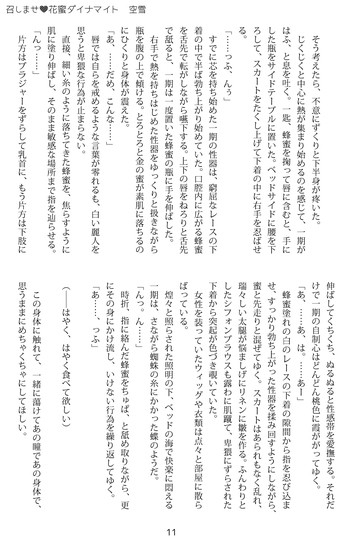 召しませ♥花蜜ダイナマイト　空雪
そう考えたら、不意にずくりと下半身が疼いた。
じくじくと中心に熱が集まり始めるのを感じて、一期が
はふ、と息を吐く。一匙、蜂蜜を掬って唇に含むと、手に
した瓶をサイドテーブルに置いた。ベッドサイドに腰を下
ろして、スカートをたくし上げて下着の中に右手を忍ばせ
る。
「……っふ、んう」
すでに芯を持ち始めた一期の性器は、窮屈なレースの下
着の中で半ば勃ち上がり始めていた。口腔内に広がる蜂蜜
を舌先で転がしながら嚥下する。上下の唇をねろりと舌先
で舐ると、一期は一度置いていた蜂蜜の瓶に手を伸ばした。
左手で熱を持ちはじめた性器をゆっくりと扱きながら
瓶を腹の上で傾ける。とろとろと金の蜜が素肌に落ちるの
にひくりと身体が震えた。
「あ、……だめ、こんな……」
唇では自らを戒めるような言葉が零れるも、白い麗人を
思うと卑猥な行為が止まらない。
直接、細い糸のように落ちてきた蜂蜜を、焦らすように
肌に塗り伸ばし、そのまま敏感な場所まで指を辿らせる。
「んっ……」
片方はブラジャーをずらして乳首に、もう片方は下肢に
伸ばしてくちくち、ぬるぬると性感帯を愛撫する。それだ
けで一期の自制心はどんどん桃色に霞がかってゆく。
「あ、……あ、は。……あー」
蜂蜜塗れの白のレースの下着の隙間から指を忍び込ま
せ、すっかり勃ち上がった性器を揉み回すようにしながら、
蜜と先走りと混ぜてゆく。スカートはあられもなく乱れ、
端々しい太腿が悩ましげにリネンに皺を作る。ふんわりと
したシフォンブラウスも露わに肌蹴て、卑猥にずらされた
下着から突起が色づき覗いていた。
女性を装っていたウィッグや衣類は点々と部屋に散ら
ばっている。
煌々と照らされた照明の下、ベッドの海で快楽に悶える
一期は、さながら蜘蛛の糸にかかった蝶のようだ。
「んっ。んん……」
時折、指に絡んだ蜂蜜をちゅぱ、と舐め取りながら、更
にその身にかけ流し、いけない行為を繰り返してゆく。
「あ……、っふ」
（――はやく、はやく食べて欲しい）
この身体に触れて、一緒に蕩けてあの瞳であの身体で、
思うままにめちゃくちゃにしてほしい。
11